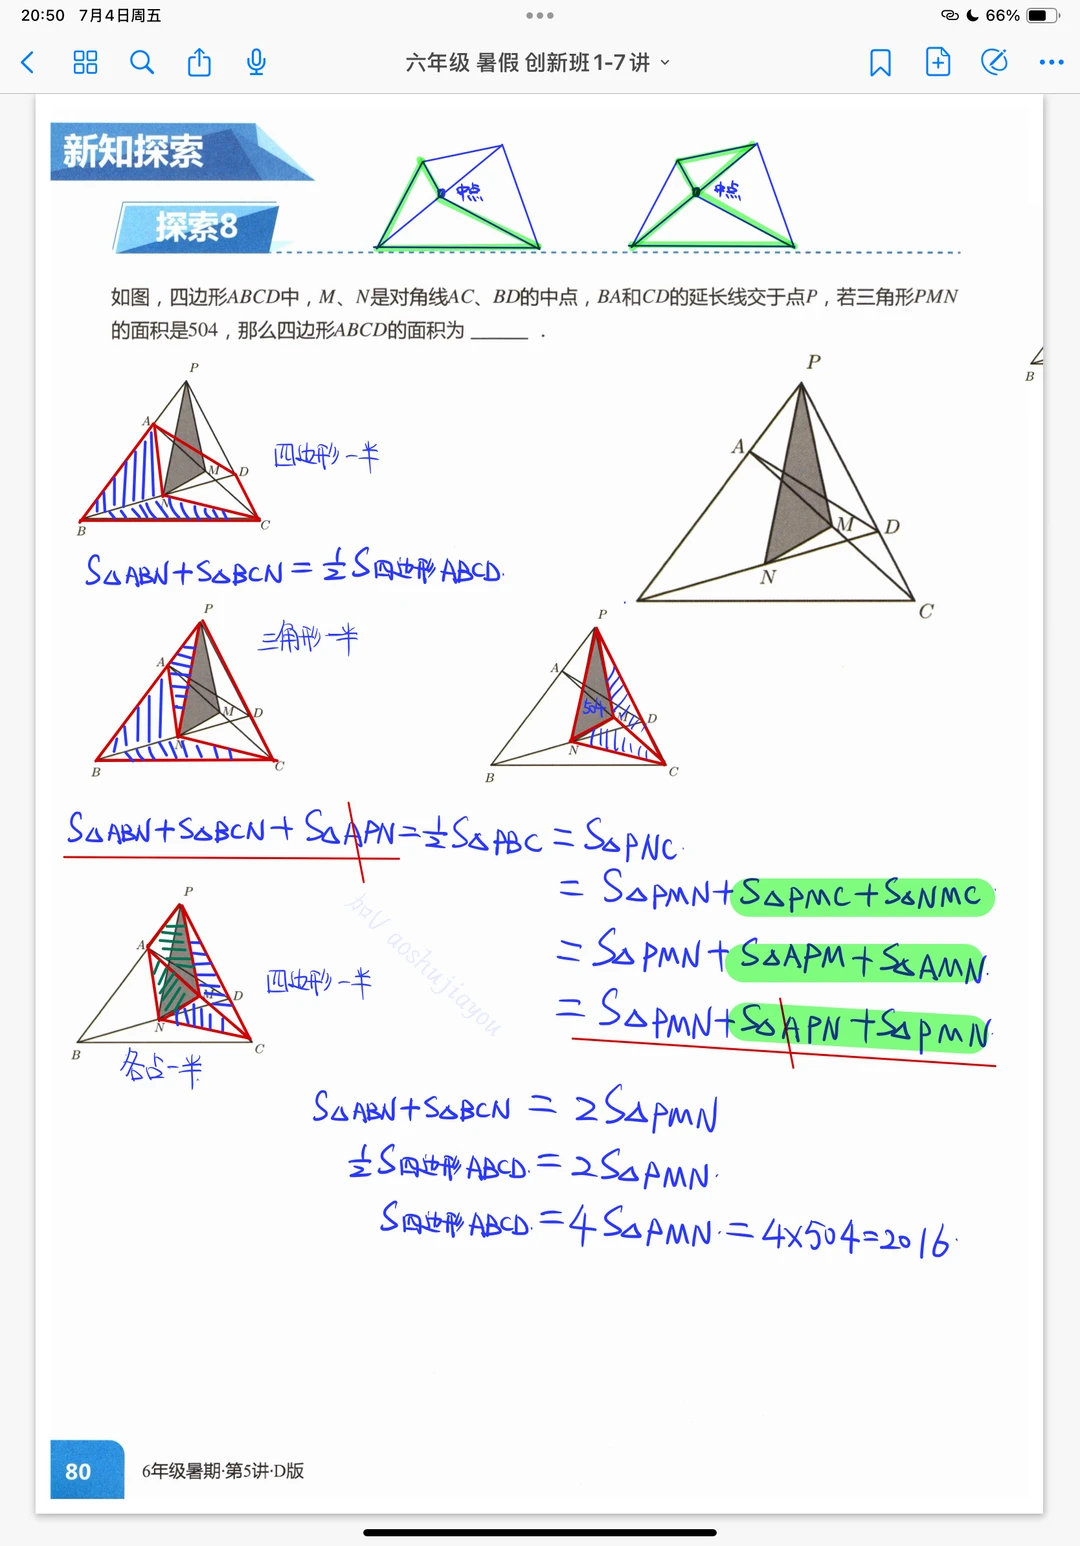 20:50 7月4日周五
66%
六年级 暑假 创新班1-7讲
新知探索
探索8
中点
中点
如图，四边形ABCD中，M、N是对角线AC、BD的中点，BA和CD的延长线交于点P，若三角形PMN
的面积是504，那么四边形ABCD的面积为 ______ .
P
A
M
D
N
B
C
四边形一半
P
A
M
D
N
C
B
S△ABN+S△BCN=½S四边形ABCD.
P
A
M
D
N
B
C
三角形一半
P
A
504
M
D
N
B
C
S△ABN+S△BCN+S△APN=½S△PBC=S△PNC.
=S△PMN+S△PMC+S△NMC
=S△PMN+S△APM+S△AMN.
=S△PMN+S△APN+S△PMN.
P
A
M
D
N
B
C
四边形一半
各占一半.
aoshujiayou
S△ABN+S△BCN=2S△PMN
½S四边形ABCD.=2S△PMN.
S四边形ABCD.=4S△PMN.=4×504=2016.
80
6年级暑期·第5讲·D版